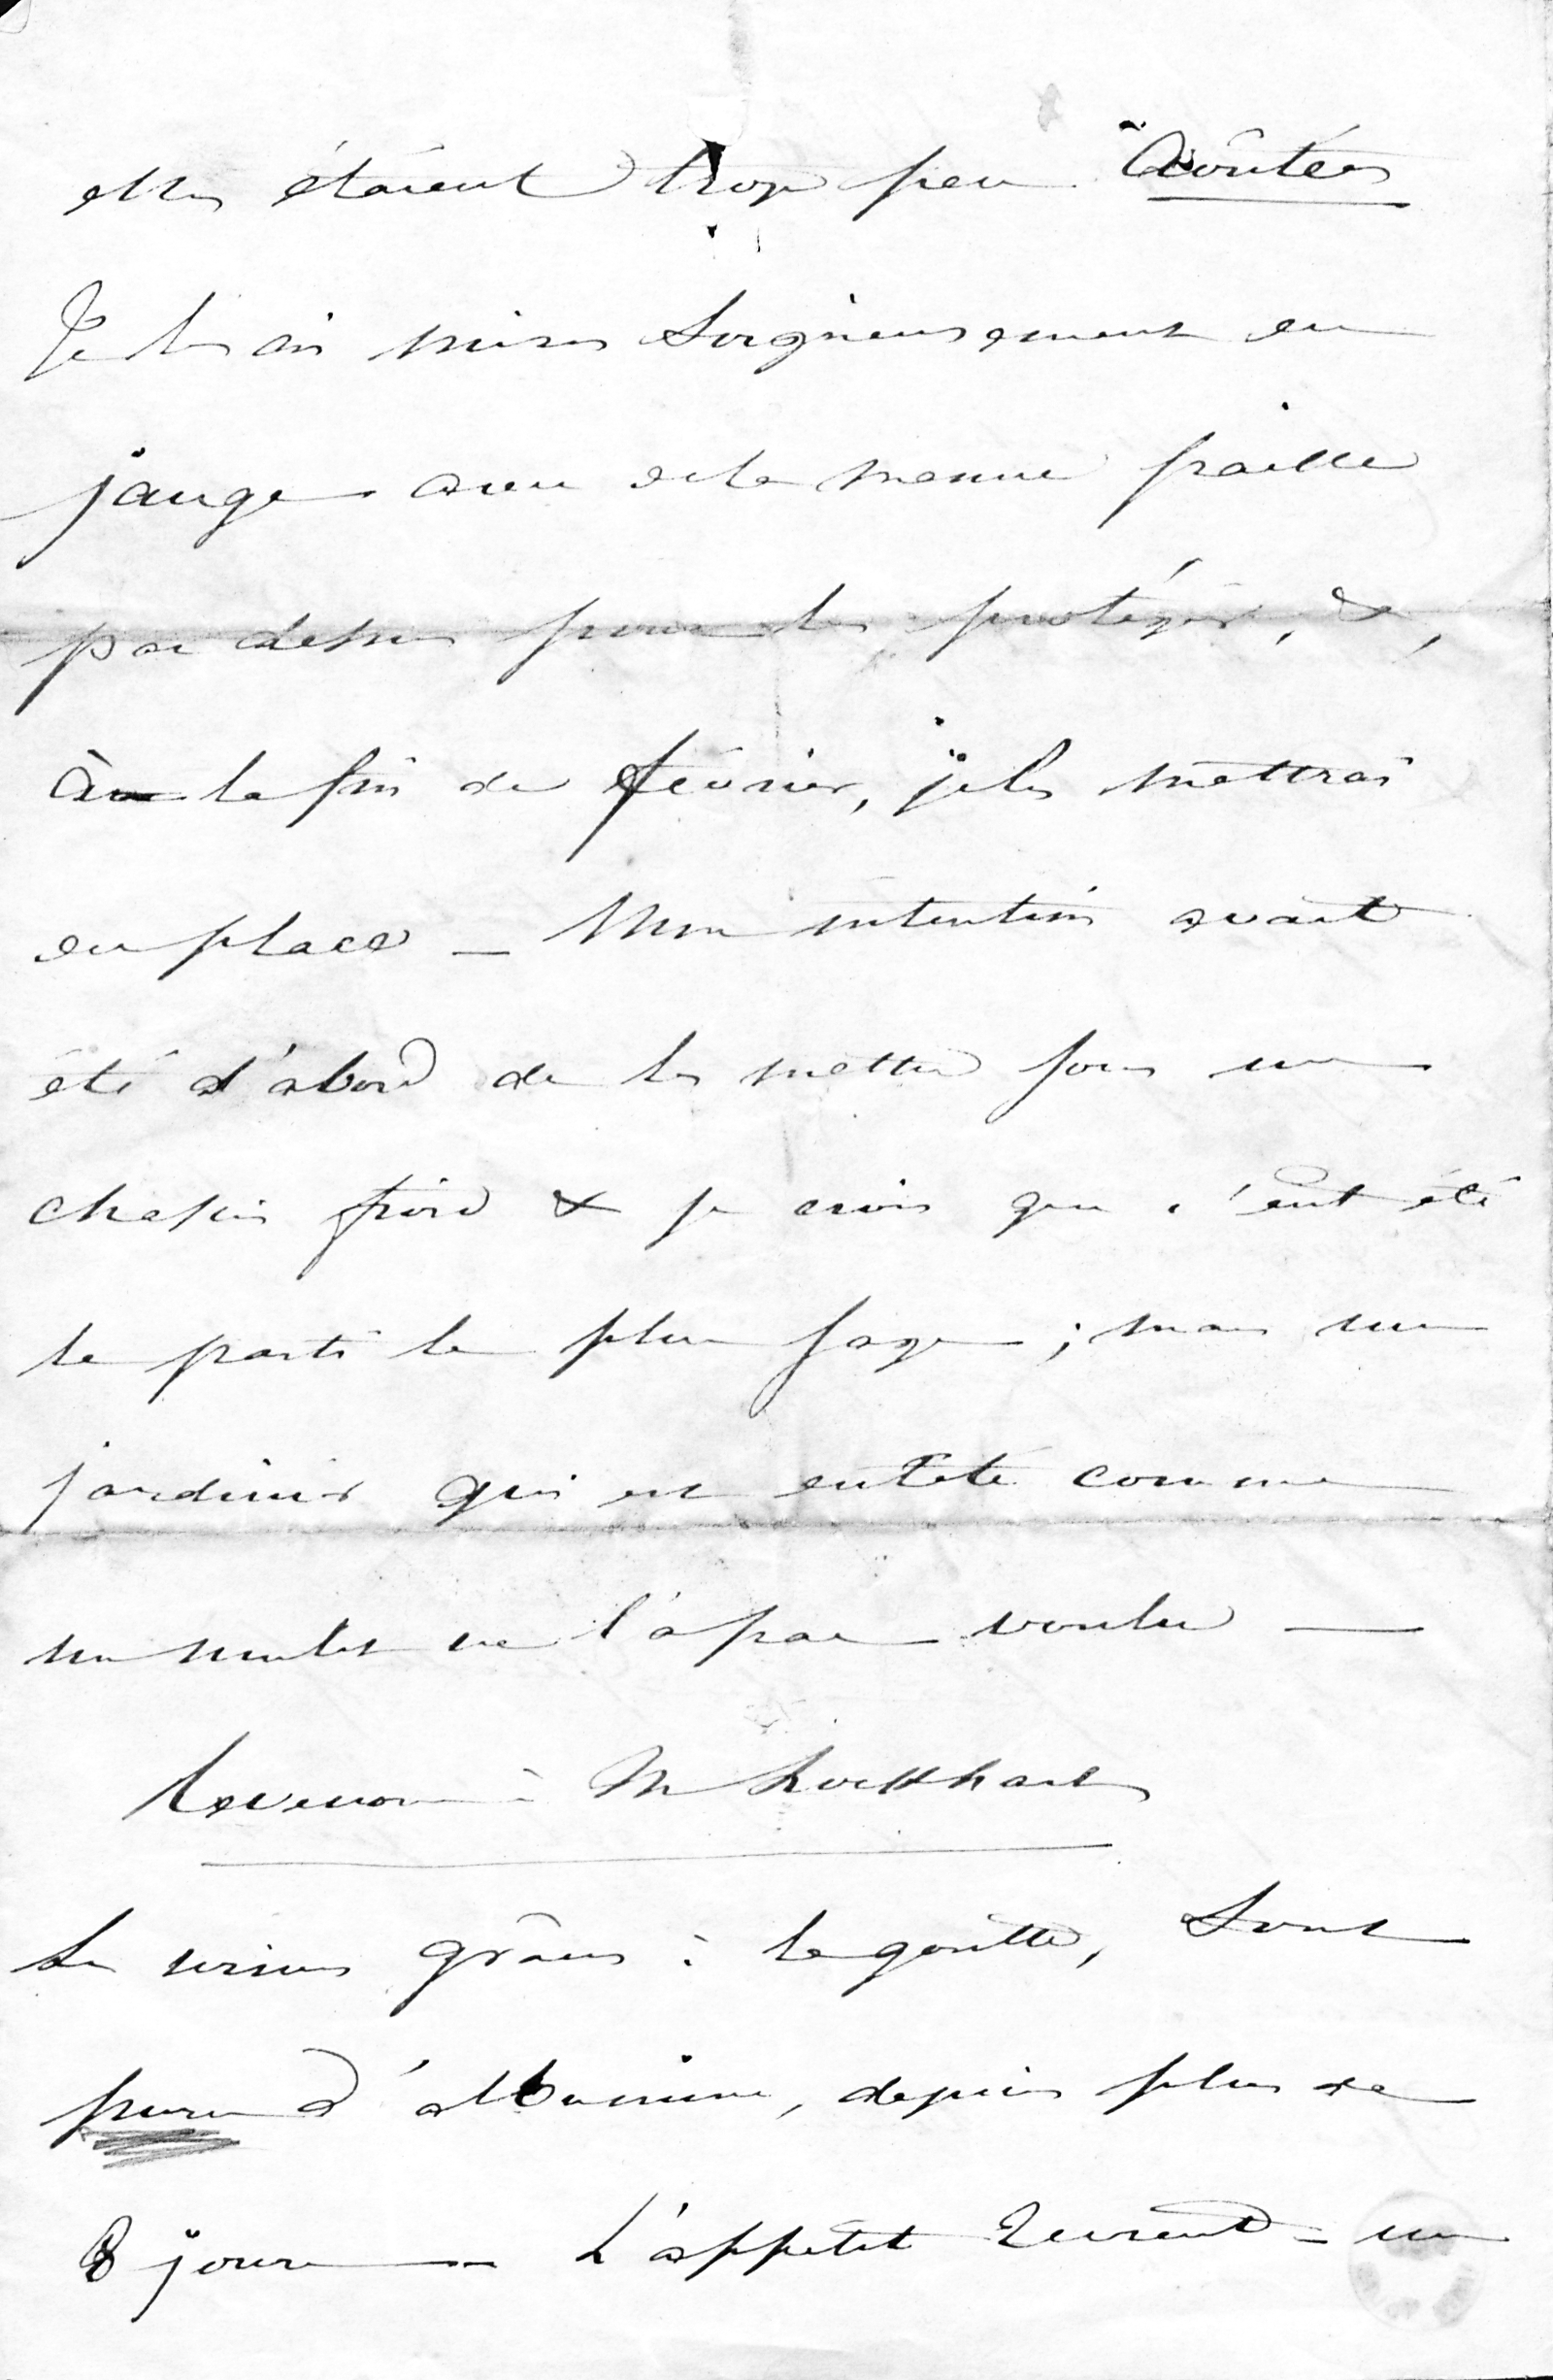 elles étaient trop peu Aoûtées
Je les ai mises soigneusement en
jauge avec de la menue paille
par dessus pour les protéger, &,
à la fin de février, je les mettrai
en place — Mon intention avait
été d'abord de les mettre sous un
chassis froid & je crois que c'eut été
le parti le plus sage ; mais un
jardinier qui est entêté comme
un mulet ne l'a pas voulu —
Revenons à Mr
Les urines grâces à la goutte, sont
pures d'albumine, depuis plus de
8 jours — L'appétit revient — un